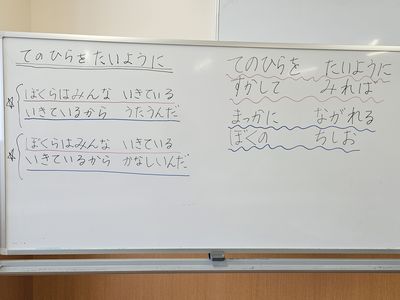 てのひらを たいように
ぼくらはみんな いきている
いきているから うたうんだ
ぼくらはみんな いきている
いきているから かなしいんだ
てのひらを たいように
すかして みれば
まっかに ながれる
ぼくの ちしお